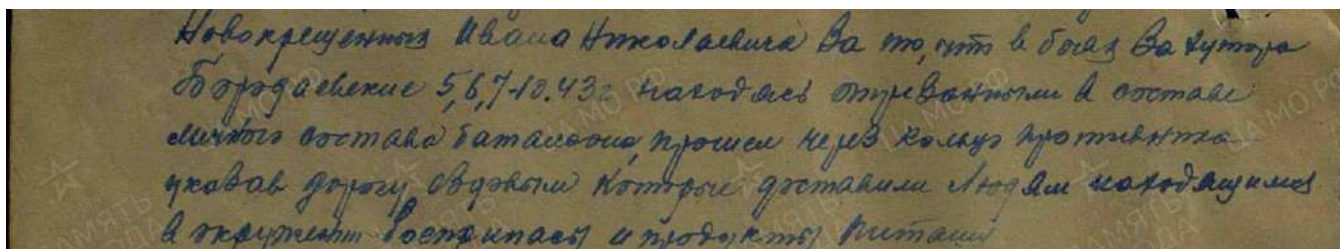 Новокрещенных Ивана Николаевича За то, что в боях За хутора
Бородаевские 5,6,7-10.43г находясь отрезанными в составе
личного состава батальона, прошел через кольцо противника
указав дорогу ездовым которые доставили людям находящимся
в окружении боеприпасы и продукты питания